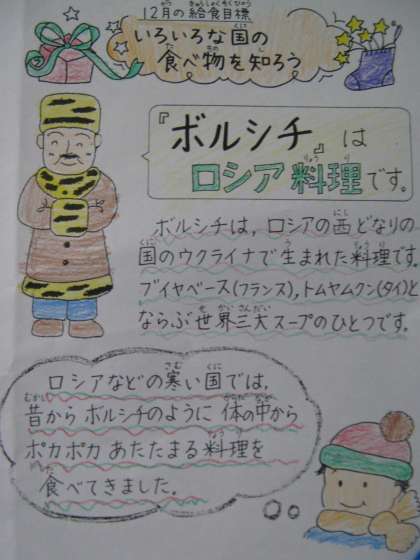 12月の給食目標
いろいろな国の
食べ物を知ろう
『ボルシチ』は
ロシア料理です。
ボルシチは，ロシアの西どなりの
国のウクライナで生まれた料理です。
ブイヤベース(フランス),トムヤムクン(タイ)と
ならぶ世界三大スープのひとつです。
ロシアなどの寒い国では，
昔からボルシチのように体の中から
ポカポカあたたまる料理を
食べてきました。